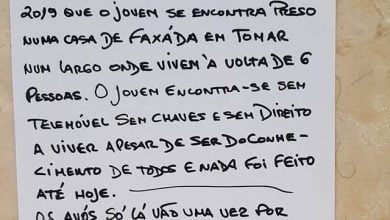 2019 QUE O JOVEM SE ENCONTRA PRESO
NUMA CASA DE FAXÁDA EM TOMAR
NUM LARGO ONDE VIVEM À VOLTA DE 6
PESSOAS. O JOVEM ENCONTRA-SE SEM
TELEMÓVEL SEM CHAVES E SEM DIREITO
A VIVER APESAR DE SER DO CONHE-
CIMENTO DE TODOS E NADA FOI FEITO
ATÉ HOJE.
OS AVÓS SÓ LÁ VÃO UMA VEZ POR